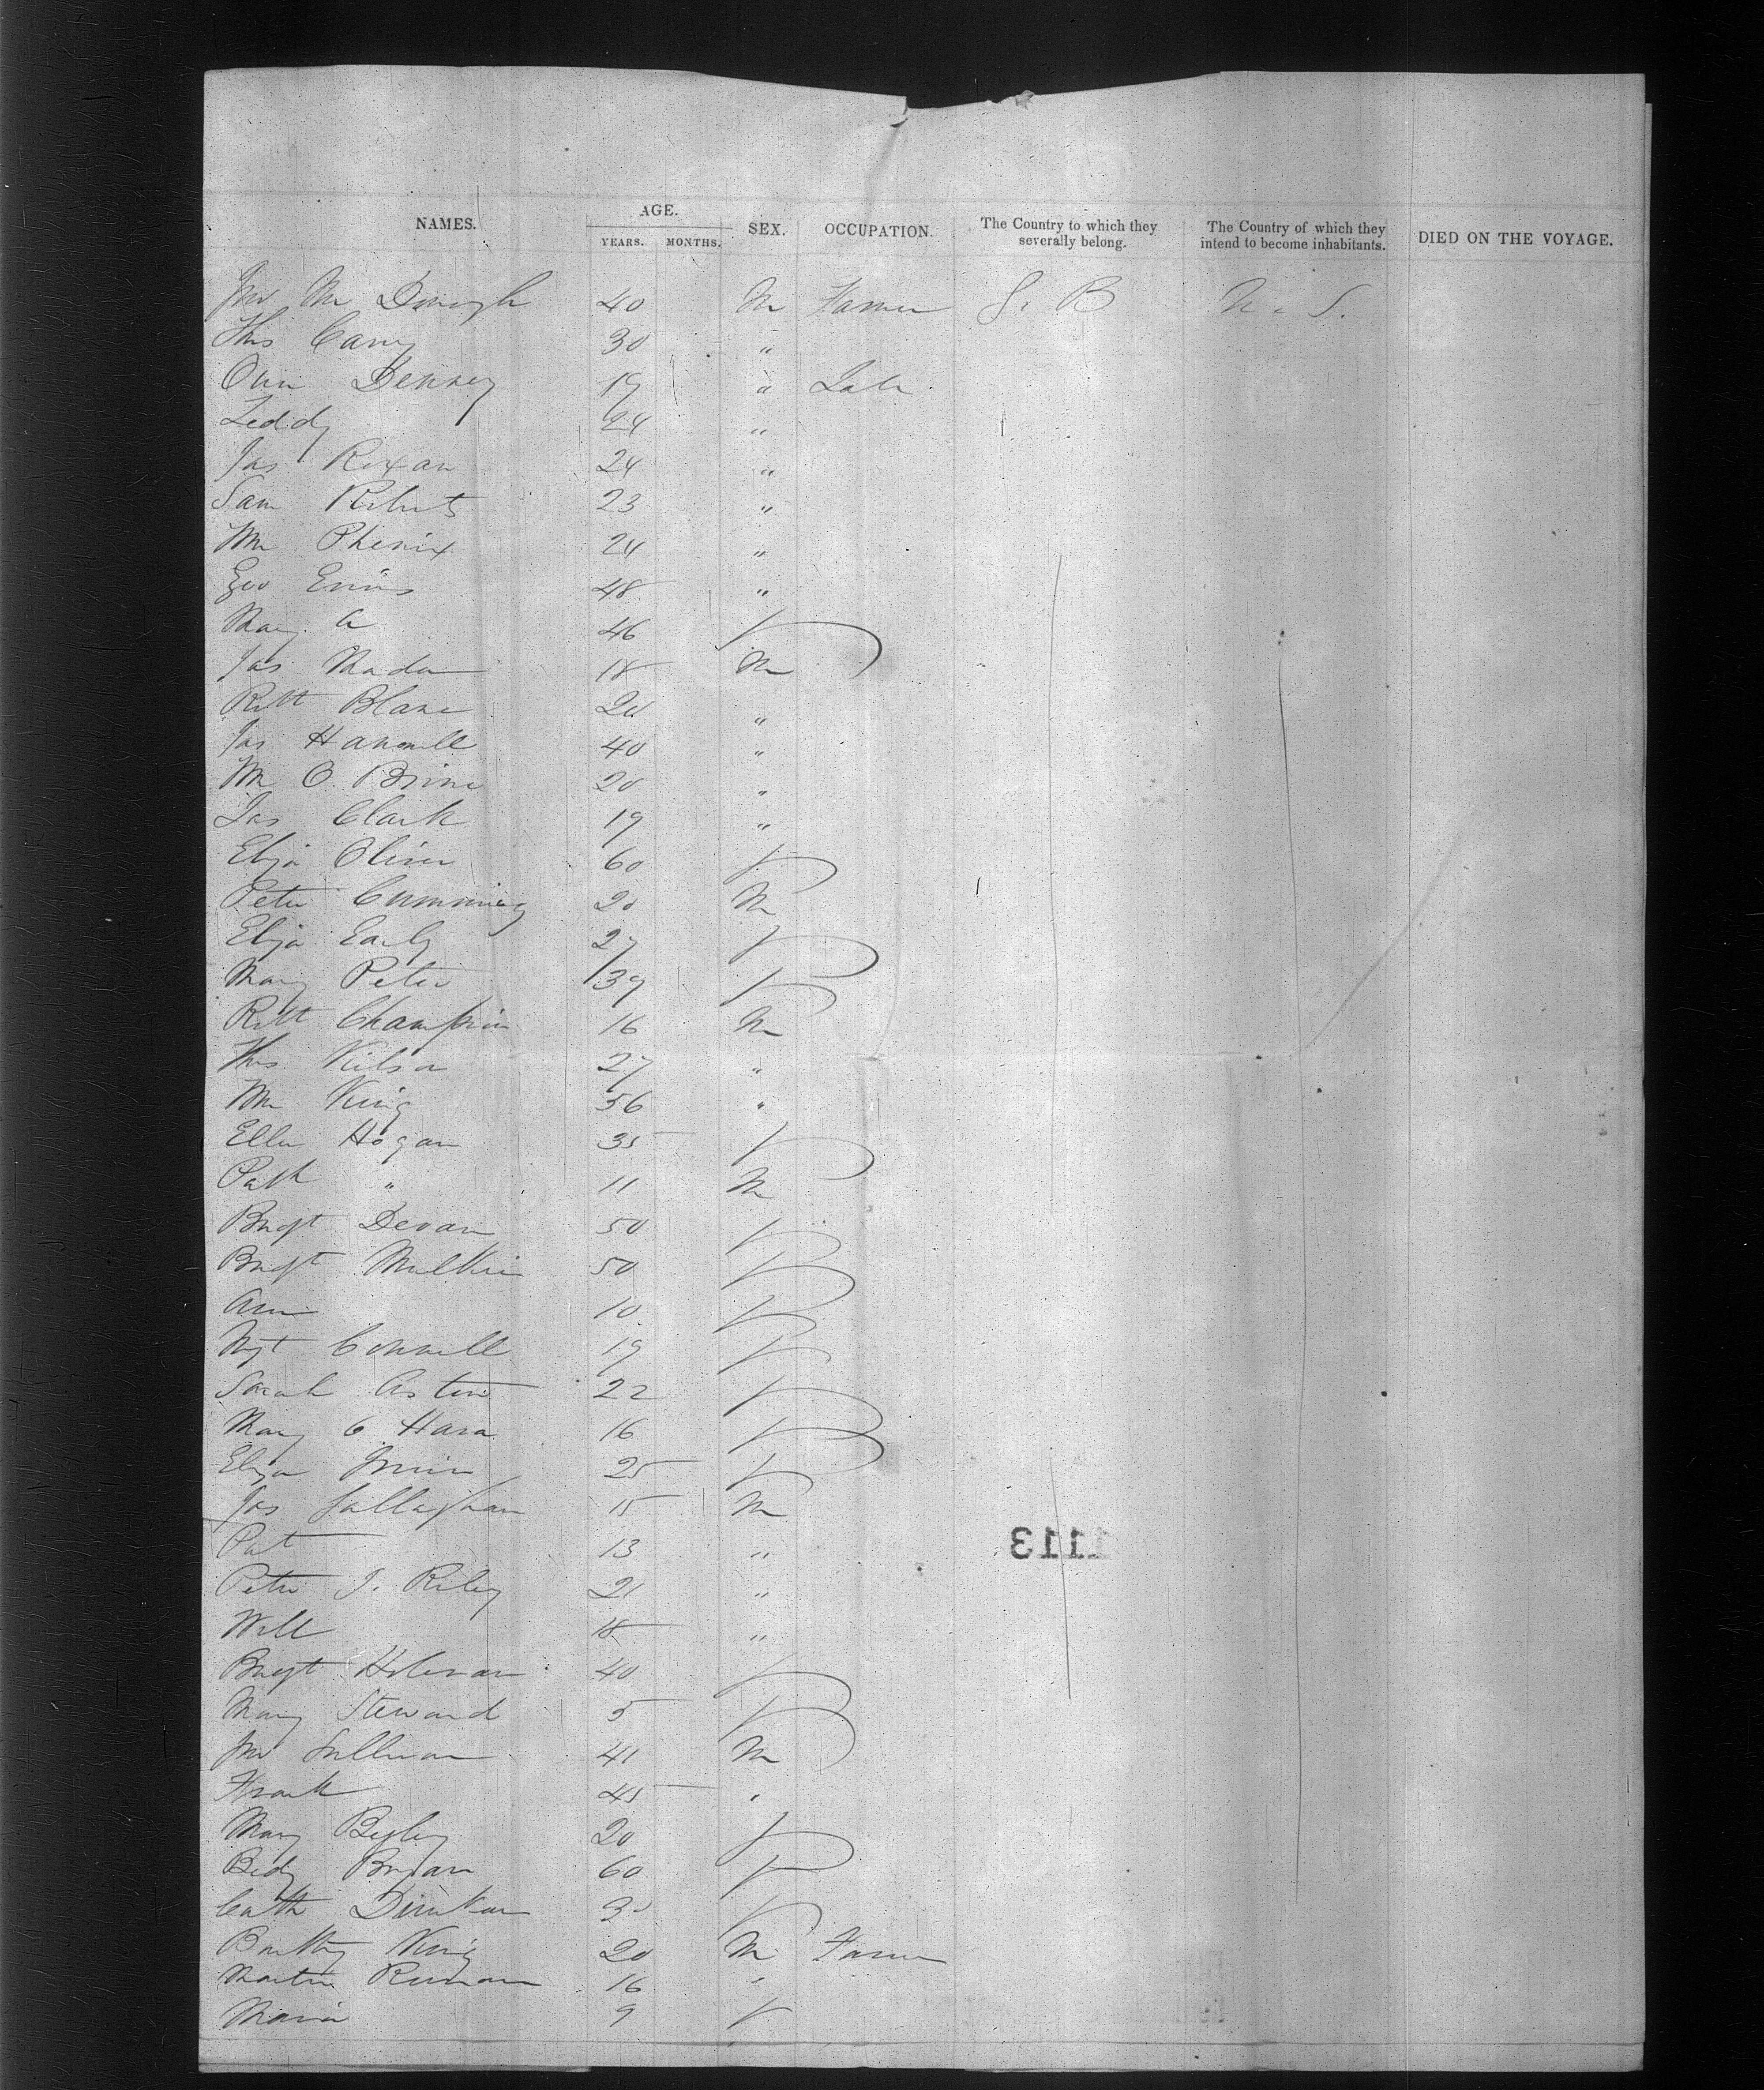 NAMES. AGE. SEX. OCCUPATION. The Country to which they severally belong. The Country of which they intend to become inhabitants. DIED ON THE VOYAGE.
YEARS. MONTHS.
Jno Mc Donogh 40 M Farmer G. B U. S.
Thos Carey 30 "
Owen Denney 19 " Labr
Teddy 24 "
Jas Roxan 24 "
Sam Roberts 23 "
Wm Phenix 24 "
Geo Evins 48 "
Mary A 46 F
Jas Madan 18 M
Robt Blane 20 "
Jas Hammill 40 "
Wm O. Brine 20 "
Jas Clark 19 "
Eliza Oliver 60 F
Peter Cumming 20 M
Eliza Early 27 F
Mary Peter 39 F
Robt Champion 16 M
Thos Kilson 27 "
Wm King 56 "
Ellen Hogan 35 F
Patk " 11 M
Bridgt Devan 50 F
Bridgt Mulkin 50 F
Ann 10 F
Mgt Connell 19 F
Sarah Astin 22 F
Mary O Hara 16 F
Eliza 25 F
Jas Gallaghan 15 M
Pat 13 "
Peter J. Riley 21 "
Will 18 "
Bridgt Holeran 40 F
Mary Steward 5 F
Jno Sullivan 41 M
Frank 45 "
Mary Begley 20 F
Bedy Bryan 60 F
Cath Dunkan 30 F
Bartty King 20 M Farmer
Martin Runan 16 "
Maria 9 F
1113